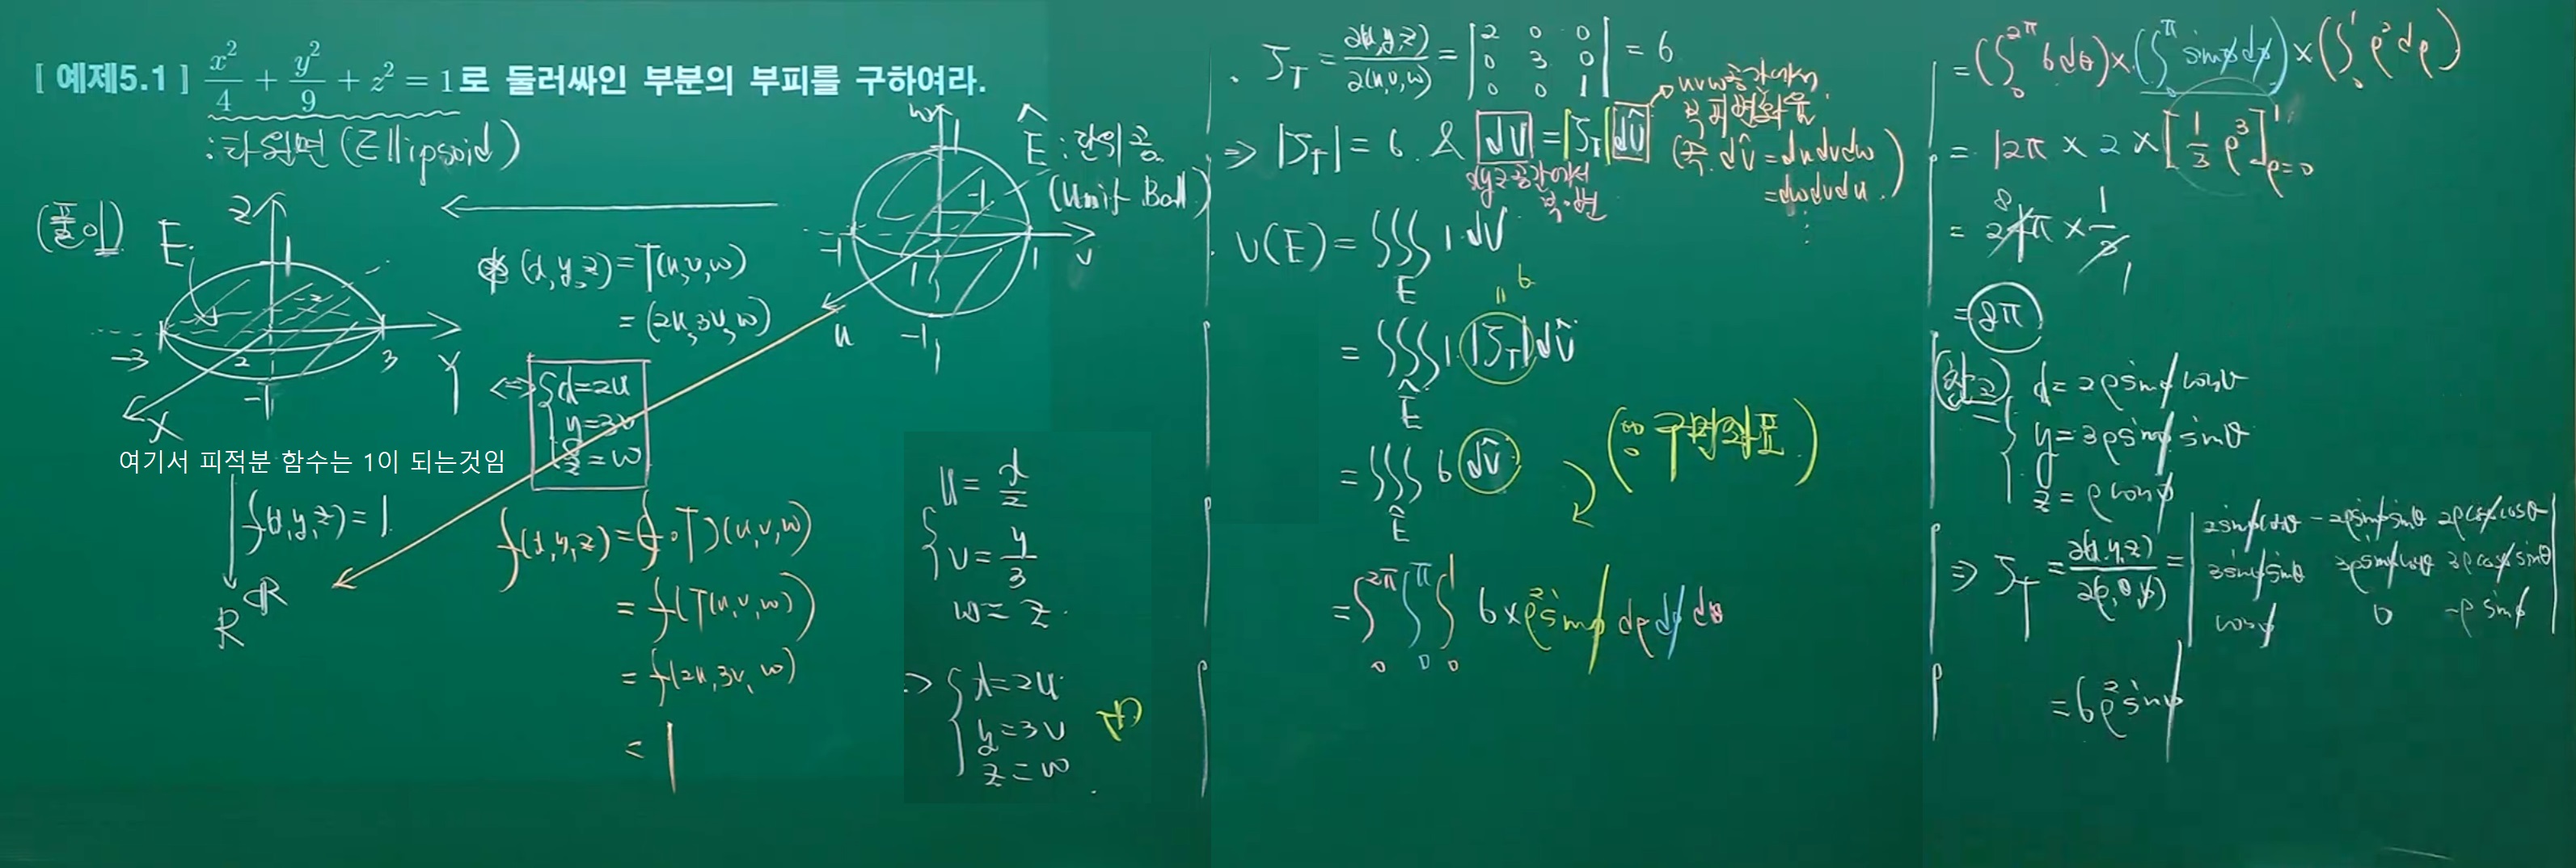 [ 예제5.1 ] x²/4 + y²/9 + z² = 1로 둘러싸인 부분의 부피를 구하여라.
: 타원면 (Ellipsoid)
(풀이)
E
Z
1
-2
-3
3
2
-1
Y
X
(x,y,z) = T(u,v,w)
= (2u, 3v, w)
⇔ { x=2u
y=3v
z=w
w
1
Ê : 단위 공
(Unit Ball)
-1
-1
1
1
v
u
-1
여기서 피적분 함수는 1이 되는것임
f(x,y,z) = 1
R
R
f(x,y,z) = (f∘T)(u,v,w)
= f(T(u,v,w))
= f(2u, 3v, w)
= 1
{ u = x/2
v = y/3
w = z.
⇒ { x=2u
y=3v
z=w
· J_T = ∂(x,y,z)/∂(u,v,w) = | 2 0 0
0 3 0
0 0 1 | = 6
⇒ |J_T| = 6. & dV = |J_T| dV̂
uvw공간에서
xyz공간에서
dV̂ = dudvdw
= dwdvdu
⋮
· V(E) = ∭_E 1 dV
= ∭_Ê 1·|J_T| dV̂
= 6
= ∭_Ê 6 dV̂
(∵ 구면좌표)
= ∫₀^2π ∫₀^π ∫₀^1 6×ρ² sinφ dρ dφ dθ
= (∫₀^2π 6dθ) × (∫₀^π sinφ dφ) × (∫₀^1 ρ² dρ)
= 12π × 2 × [1/3 ρ³]^1_ρ=0
= 24π × 1/3
8
1
= 8π
(참고) { x = 2ρ sinφ cosθ
y = 3ρ sinφ sinθ
z = ρ cosφ
⇒ J_T = ∂(x,y,z)/∂(ρ,θ,φ) = | 2sinφcosθ -2ρsinφsinθ 2ρcosφcosθ
3sinφsinθ 3ρsinφcosθ 3ρcosφsinθ
cosφ 0 -ρsinφ |
= 6ρ² sinφ